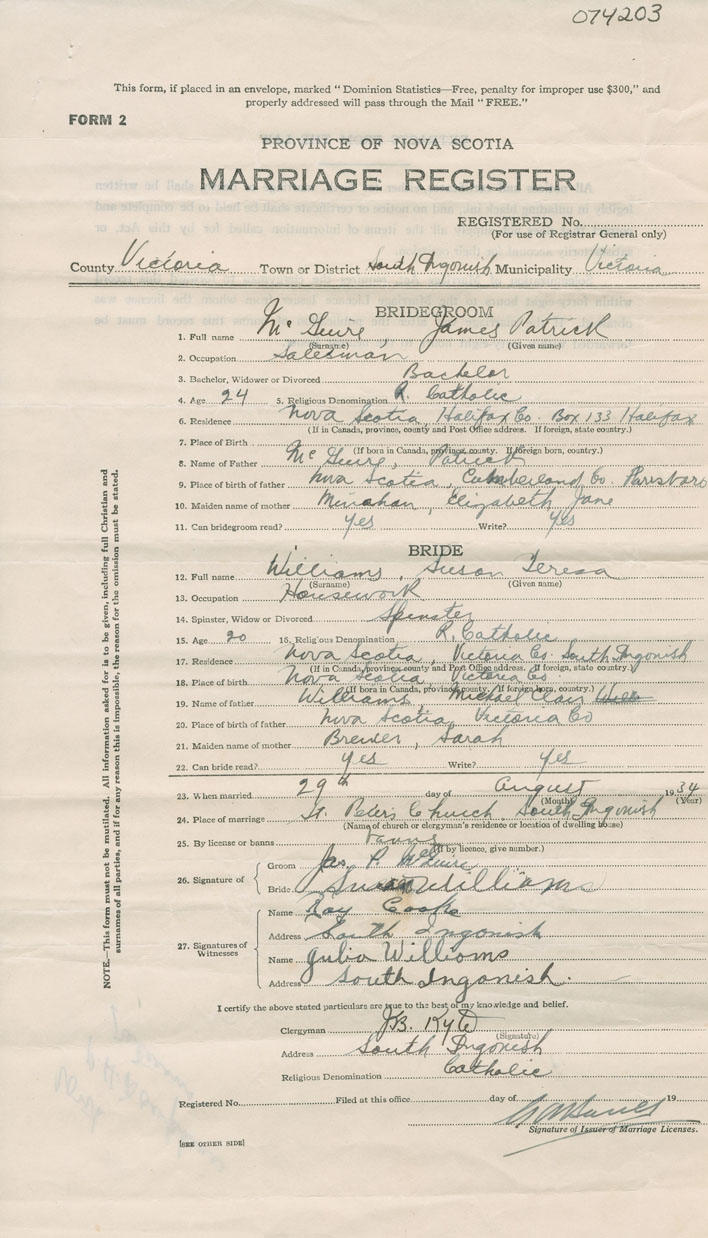 074203
This form, if placed in an envelope, marked "Dominion Statistics—Free, penalty for improper use $300," and
properly addressed will pass through the Mail "FREE."
FORM 2
PROVINCE OF NOVA SCOTIA
MARRIAGE REGISTER
REGISTERED No.
(For use of Registrar General only)
County Victoria Town or District South Ingonish Municipality Victoria
BRIDEGROOM
1. Full name McGuire, James Patrick
(Surname) (Given name)
2. Occupation Salesman
3. Bachelor, Widower or Divorced Bachelor
4. Age 24 5. Religious Denomination R. Catholic
6. Residence Nova Scotia, Halifax Co. Box 133 Halifax
(If in Canada, province, county and Post Office address. If foreign, state country.)
7. Place of Birth
(If born in Canada, province, county. If foreign born, country.)
8. Name of Father McGuire, Patrick
9. Place of birth of father Nova Scotia, Cumberland Co. Parrsboro
10. Maiden name of mother Minahan, Elizabeth Jane
11. Can bridegroom read? yes Write? yes
BRIDE
12. Full name Williams, Susan Teresa
(Surname) (Given name)
13. Occupation Housework
14. Spinster, Widow or Divorced Spinster
15. Age 20 16. Religious Denomination R. Catholic
17. Residence Nova Scotia, Victoria Co. South Ingonish
(If in Canada, province, county and Post Office address. If foreign, state country.)
18. Place of birth Nova Scotia, Victoria Co
(If born in Canada, province, county. If foreign born, country.)
19. Name of father Williams, Michael
20. Place of birth of father Nova Scotia, Victoria Co
21. Maiden name of mother Brewer, Sarah
22. Can bride read? yes Write? yes
23. When married 29th day of August 1934
(Month) (Year)
24. Place of marriage St. Peters Church, South Ingonish
(Name of church or clergyman's residence or location of dwelling house)
25. By license or banns Banns
(If by licence, give number.)
26. Signature of
Groom Jas. P. McGuire
Bride Susan Williams
27. Signatures of Witnesses
Name Roy Cooke
Address South Ingonish
Name Julia Williams
Address South Ingonish.
I certify the above stated particulars are true to the best of my knowledge and belief.
Clergyman J.B. Kyte
(Signature)
Address South Ingonish
Religious Denomination Catholic
Registered No. Filed at this office day of 19
Signature of Issuer of Marriage Licenses.
[SEE OTHER SIDE]
NOTE.—This form must not be mutilated. All information asked for is to be given, including full Christian and
surnames of all parties, and if for any reason this is impossible, the reason for the omission must be stated.